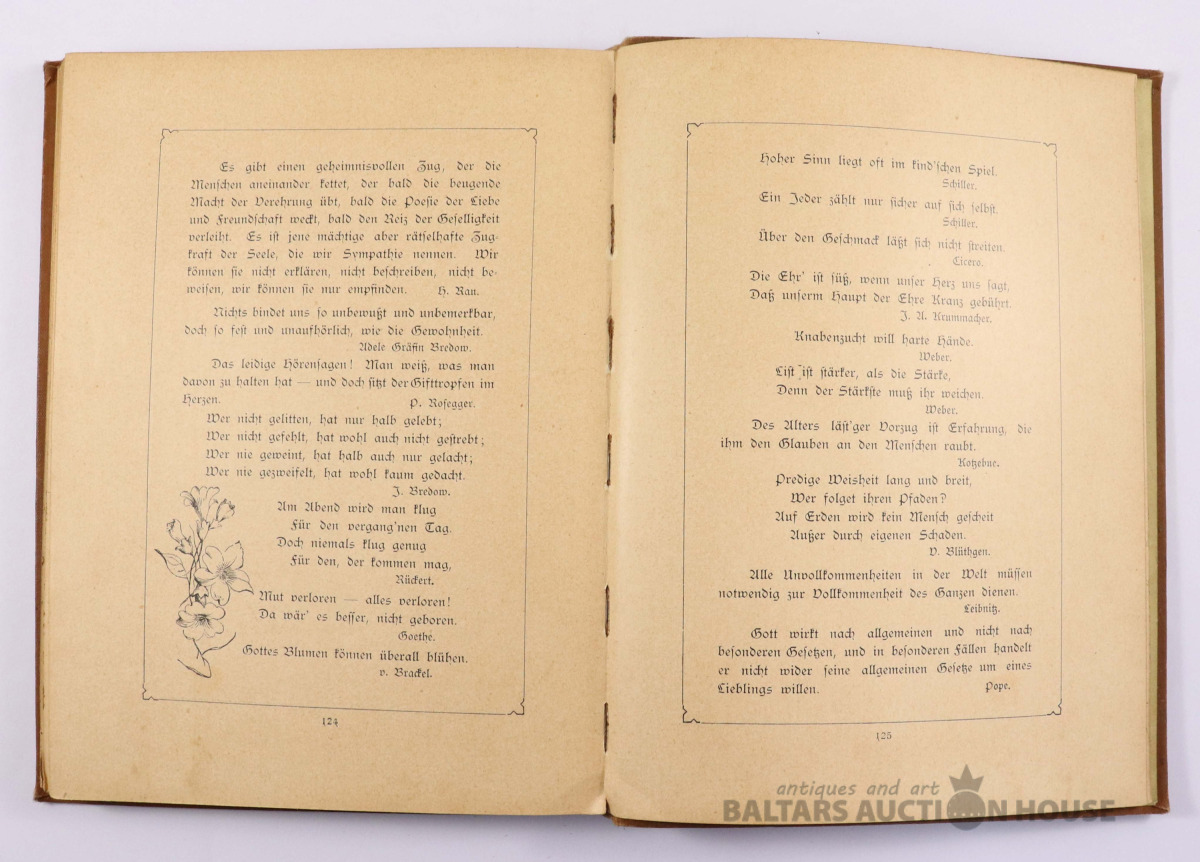 Es gibt einen geheimnisvollen Zug, der die
Menschen aneinander kettet, der bald die beugende
Macht der Verehrung übt, bald die Poesie der Liebe
und Freundschaft weckt, bald den Reiz der Geselligkeit
verleiht. Es ist jene mächtige aber rätselhafte Zug-
kraft der Seele, die wir Sympathie nennen. Wir
können sie nicht erklären, nicht beschreiben, nicht be-
weisen, wir können sie nur empfinden. H. Rau.
Nichts bindet uns so unbewußt und unbemerkbar,
doch so fest und unaufhörlich, wie die Gewohnheit.
Adele Gräfin Bredow.
Das leidige Hörensagen! Man weiß, was man
davon zu halten hat — und doch sitzt der Gifttropfen im
Herzen. P. Rosegger.
Wer nicht gelitten, hat nur halb gelebt;
Wer nicht gefehlt, hat wohl auch nicht gestrebt;
Wer nie geweint, hat halb auch nur gelacht;
Wer nie gezweifelt, hat wohl kaum gedacht.
J. Bredow.
Am Abend wird man klug
Für den vergang'nen Tag.
Doch niemals klug genug
Für den, der kommen mag,
Rückert.
Mut verloren — alles verloren!
Da wär' es besser, nicht geboren.
Goethe.
Gottes Blumen können überall blühen.
v. Brackel.
124
Hoher Sinn liegt oft im kind'schen Spiel.
Schiller.
Ein Jeder zählt nur sicher auf sich selbst.
Schiller.
Über den Geschmack läßt sich nicht streiten.
Cicero.
Die Ehr' ist süß, wenn unser Herz uns sagt,
Daß unserm Haupt der Ehre Kranz gebührt.
J. A. Krummacher.
Knabenzucht will harte Hände.
Weber.
List ist stärker, als die Stärke,
Denn der Stärkste muß ihr weichen.
Weber.
Des Alters läst'ger Vorzug ist Erfahrung, die
ihm den Glauben an den Menschen raubt.
Kotzebue.
Predige Weisheit lang und breit,
Wer folget ihren Pfaden?
Auf Erden wird kein Mensch gescheit
Außer durch eigenen Schaden.
V. Blüthgen.
Alle Unvollkommenheiten in der Welt müssen
notwendig zur Vollkommenheit des Ganzen dienen.
Leibnitz.
Gott wirkt nach allgemeinen und nicht nach
besonderen Gesetzen, und in besonderen Fällen handelt
er nicht wider seine allgemeinen Gesetze um eines
Lieblings willen. Pope.
125
antiques and art
BALTARS AUCTION HOUSE